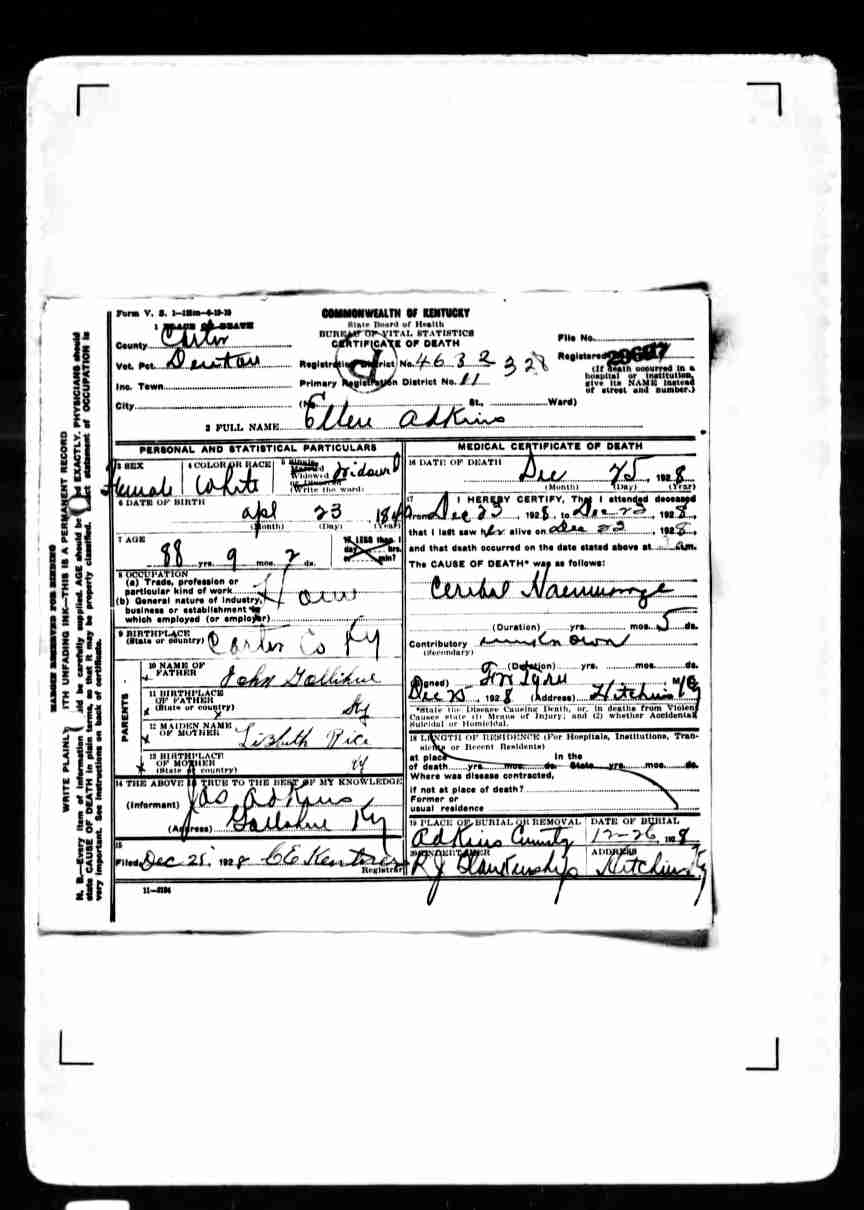 Form V. S. 1-
COMMONWEALTH OF KENTUCKY
State Board of Health
BUREAU OF VITAL STATISTICS
CERTIFICATE OF DEATH
1 PLACE OF DEATH
County Carter
Vot. Pct. Denton
Inc. Town
City
Registration District No. 4632 328
Primary Registration District No. 11
(No. St., Ward)
File No.
Registered
(If death occurred in a
hospital or institution,
give its NAME instead
of street and number.)
2 FULL NAME Ellen Adkins
PERSONAL AND STATISTICAL PARTICULARS
3 SEX
Female
4 COLOR OR RACE
White
5 Single
Married
Widowed
or Divorced
(Write the word)
Widowed
6 DATE OF BIRTH
Apl 23
(Month) (Day)
7 AGE
88 yrs. 9 mos. 2 ds.
If LESS than 1
day hrs.
or min?
8 OCCUPATION
(a) Trade, profession or
particular kind of work
(b) General nature of industry,
business or establishment in
which employed (or employer)
9 BIRTHPLACE
(State or country) Carter Co Ky
PARENTS
10 NAME OF
FATHER John Gollihue
11 BIRTHPLACE
OF FATHER
(State or country) Ky
12 MAIDEN NAME
OF MOTHER Lizbuth Rice
13 BIRTHPLACE
OF MOTHER
(State or country) Ky
14 THE ABOVE IS TRUE TO THE BEST OF MY KNOWLEDGE
(Informant) Jas Adkins
(Address) Gollihue Ky
15
Filed Dec 25, 1928 C E
Registrar
11-
MEDICAL CERTIFICATE OF DEATH
16 DATE OF DEATH
Dec 25, 1928
(Month) (Day) (Year)
17 I HEREBY CERTIFY, That I attended deceased
from Dec 23, 1928, to Dec 23, 1928,
that I last saw her alive on Dec 23, 1928,
and that death occurred on the date stated above at m.
The CAUSE OF DEATH* was as follows:
Cerebal Haemmorage
(Duration) yrs. mos. 5 ds.
Contributory unknown
(Secondary)
(Duration) yrs. mos. ds.
(Signed)
Dec 25, 1928 (Address) Hitchins Ky
*State the Disease Causing Death, or, in deaths from Violent
Causes state (1) Means of Injury; and (2) whether Accidental,
Suicidal or Homicidal.
18 LENGTH OF RESIDENCE (For Hospitals, Institutions, Tran-
sients or Recent Residents)
At place In the
of death yrs. mos. ds. State yrs. mos. ds.
Where was disease contracted,
if not at place of death?
Former or
usual residence
19 PLACE OF BURIAL OR REMOVAL
DATE OF BURIAL
Adkins
12-26, 1928
20 UNDERTAKER
ADDRESS
R J Blankenship
Hitchins Ky
MARGIN RESERVED FOR BINDING
WRITE PLAINLY WITH UNFADING INK—THIS IS A PERMANENT RECORD
N. B.—Every item of information should be carefully supplied. AGE should be stated EXACTLY. PHYSICIANS should
state CAUSE OF DEATH in plain terms, so that it may be properly classified. Exact statement of OCCUPATION is
very important. See instructions on back of certificate.